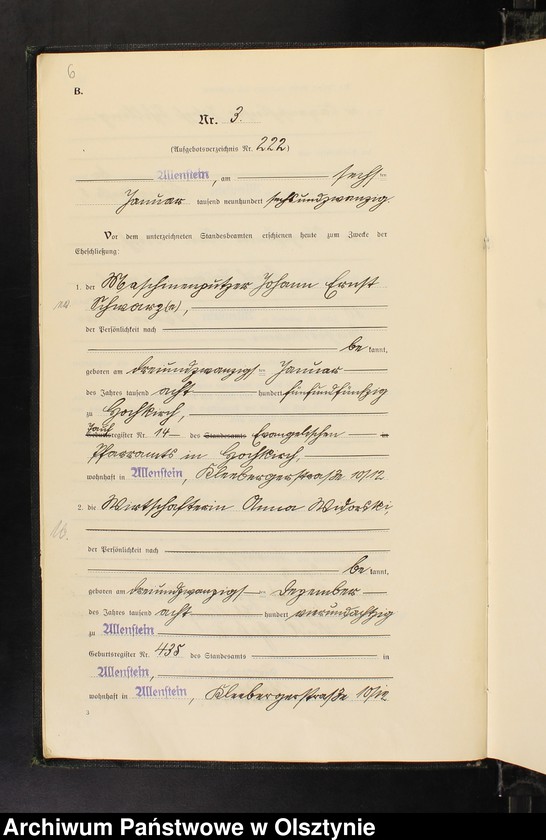 6
B.
Nr. 3.
(Aufgebotsverzeichnis Nr. 222)
Allenstein, am sechsten
Januar tausend neunhundert sechsundzwanzig
Vor dem unterzeichneten Standesbeamten erschienen heute zum Zwecke der
Eheschließung:
1. der Maschinenputzer Johann Ernst
Schwarz(e),
der Persönlichkeit nach
bekannt,
geboren am dreiundzwanzigsten Januar
des Jahres tausend acht hundert fünfundfünfzig
zu Hochkirch,
Geburtsregister Tauf Nr. 14 des Standesamts Evangelischen in
Pfarramts in Hochkirch,
wohnhaft in Allenstein, Kleebergerstraße 10/12
2. die Wirtschafterin Anna Widorski,
10.
der Persönlichkeit nach
bekannt,
geboren am dreiundzwanzigsten Dezember
des Jahres tausend acht hundert vierundachtzig
zu Allenstein
Geburtsregister Nr. 435 des Standesamts in
Allenstein,
wohnhaft in Allenstein, Kleebergerstraße 10/12
3
Archiwum Państwowe w Olsztynie